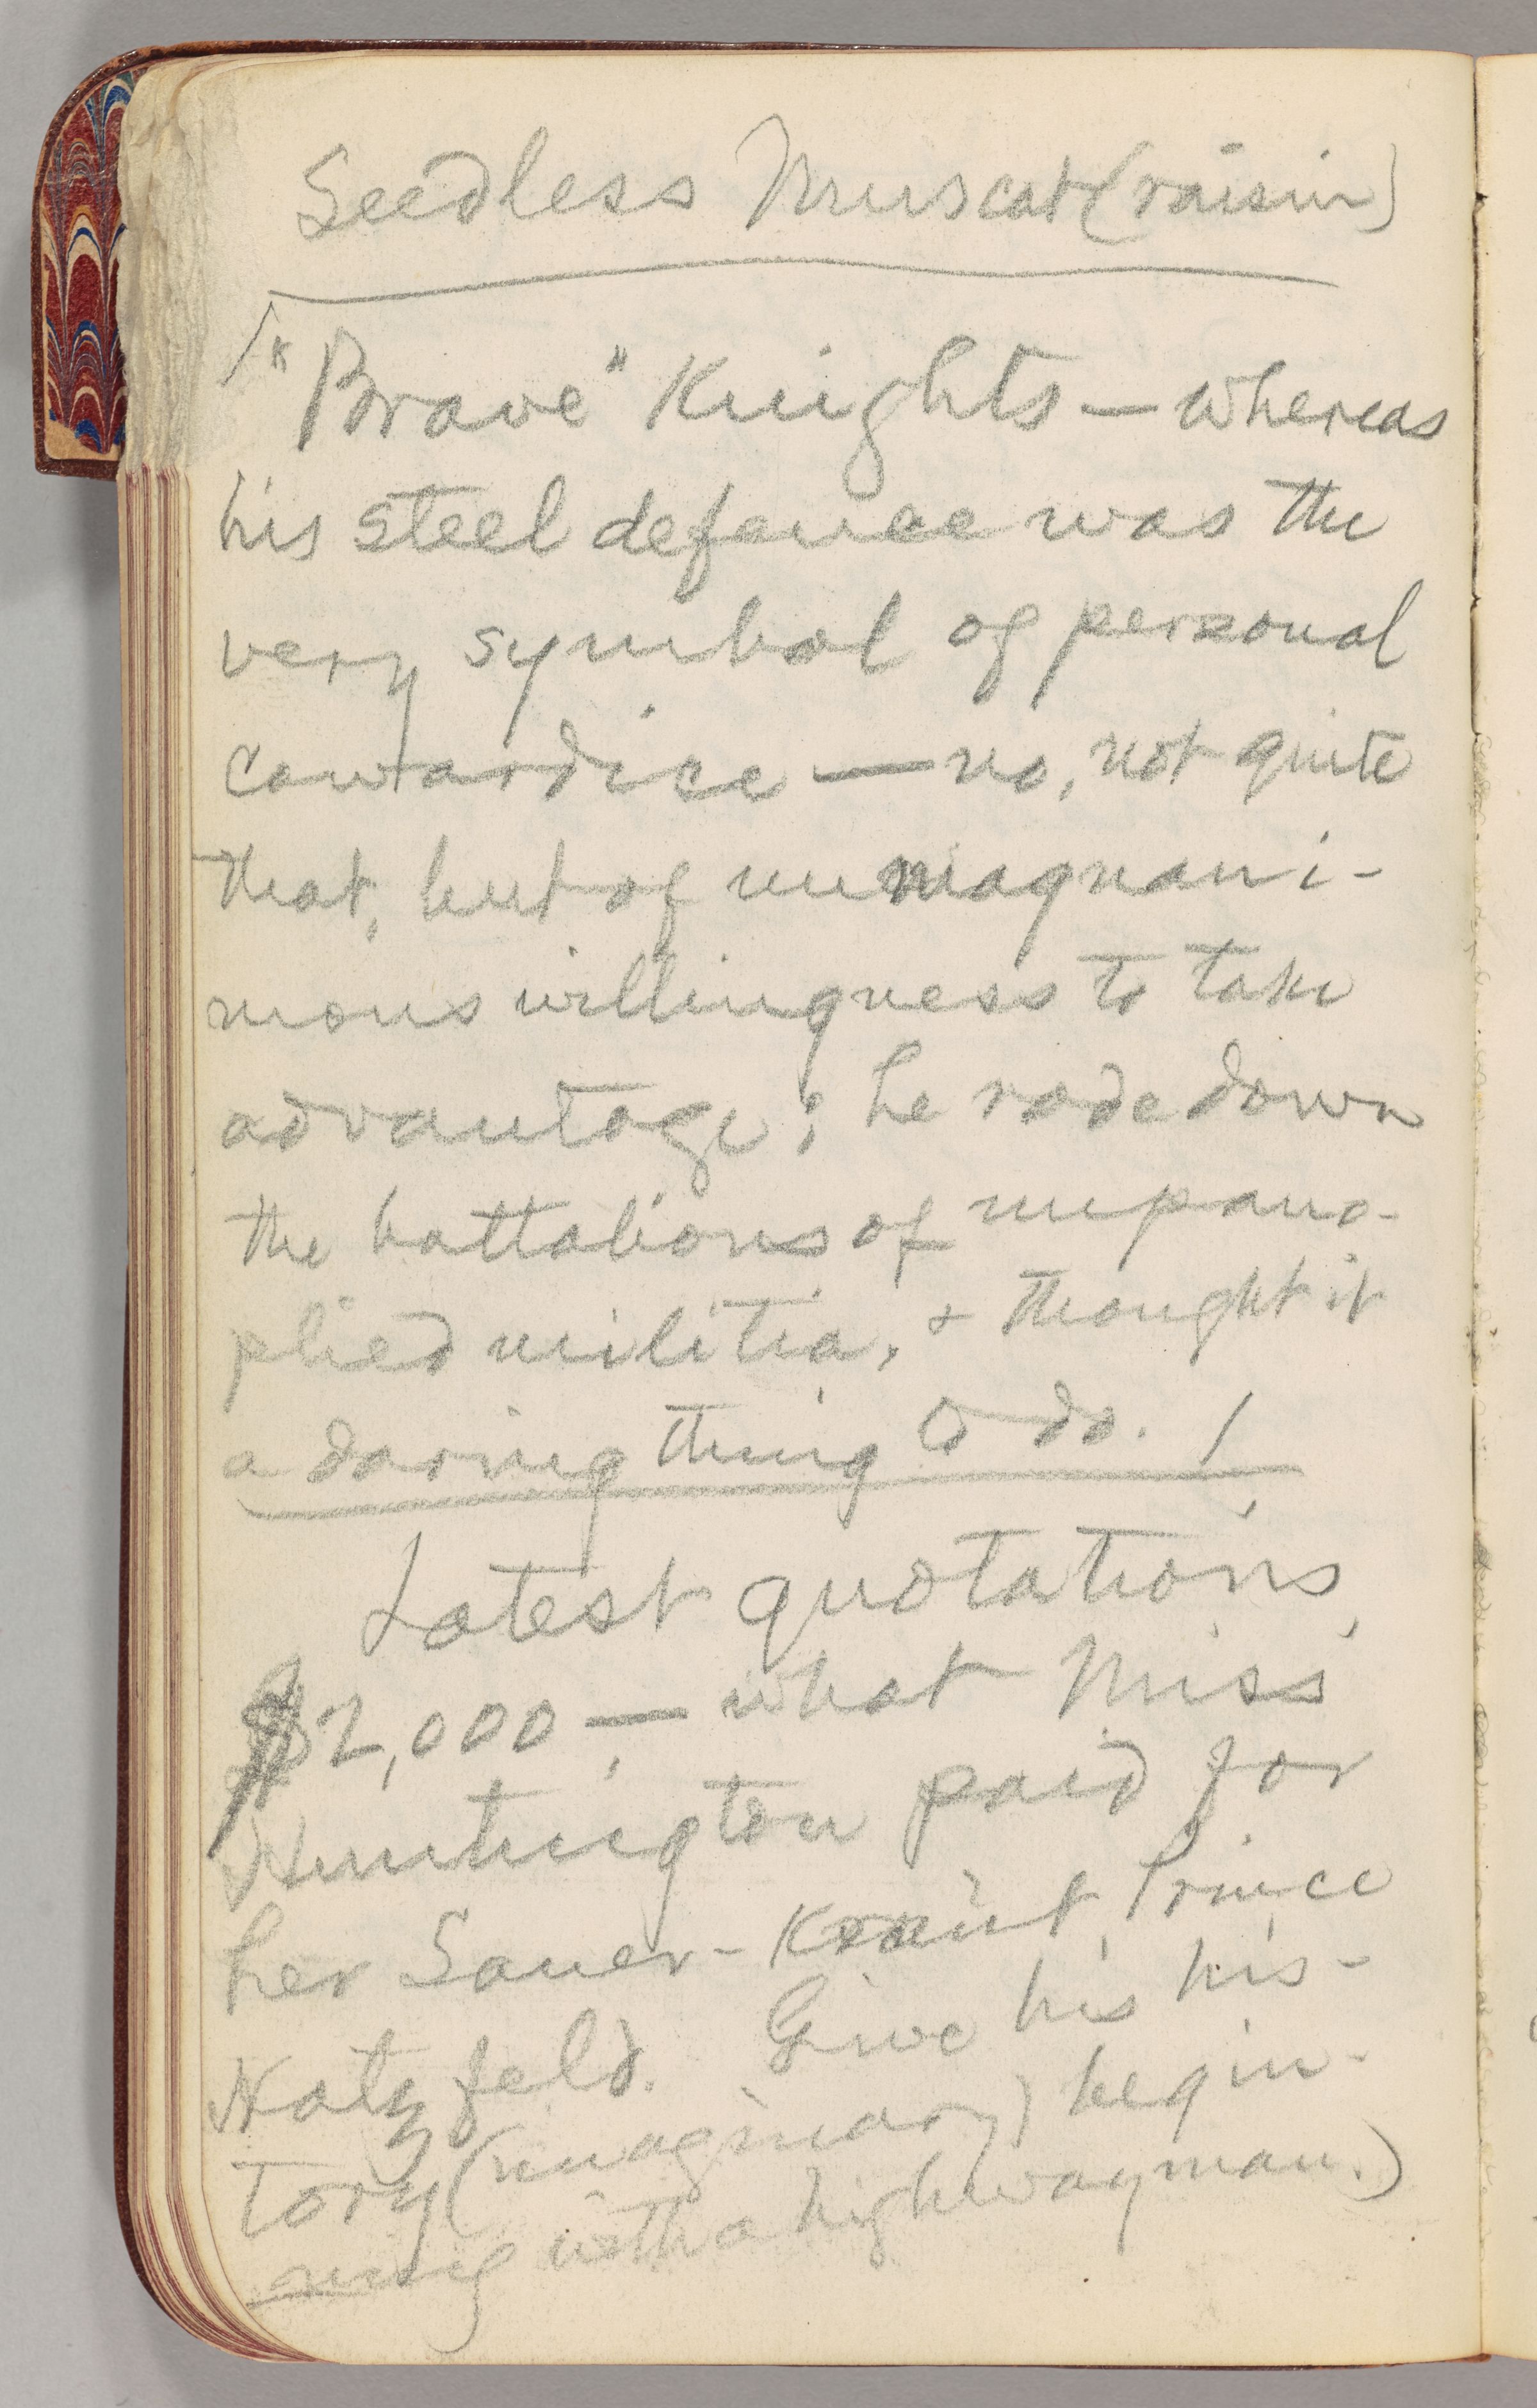 Seedless Muscat (raisin)
"Brave" Knights — whereas
his steel defence was the
very symbol of personal
cowardice — no, not quite
that, but of unmagnani-
mous willingness to take
advantage; he rode down
the battalions of unpano-
plied militia, & thought it
a daring thing to do.
Latest quotations,
$2,000, — what Miss
Huntington paid for
her Sauer-Kraut Prince
Hatzfeld. Give his his-
tory (imaginary) begin-
ning with a highwayman.)